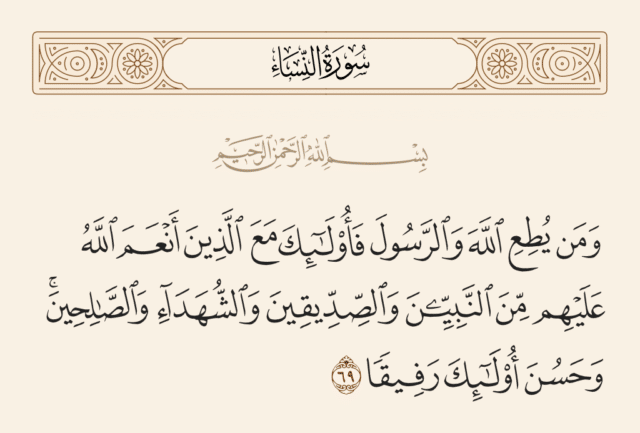 سُورَةُ النِّسَاءِ
بِسْمِ ٱللَّهِ ٱلرَّحْمَٰنِ ٱلرَّحِيمِ
وَمَن يُطِعِ ٱللَّهَ وَٱلرَّسُولَ فَأُو۟لَـٰٓئِكَ مَعَ ٱلَّذِينَ أَنْعَمَ ٱللَّهُ
عَلَيْهِم مِّنَ ٱلنَّبِيِّـۧنَ وَٱلصِّدِّيقِينَ وَٱلشُّهَدَآءِ وَٱلصَّـٰلِحِينَ ۚ
وَحَسُنَ أُو۟لَـٰٓئِكَ رَفِيقًا ٦٩